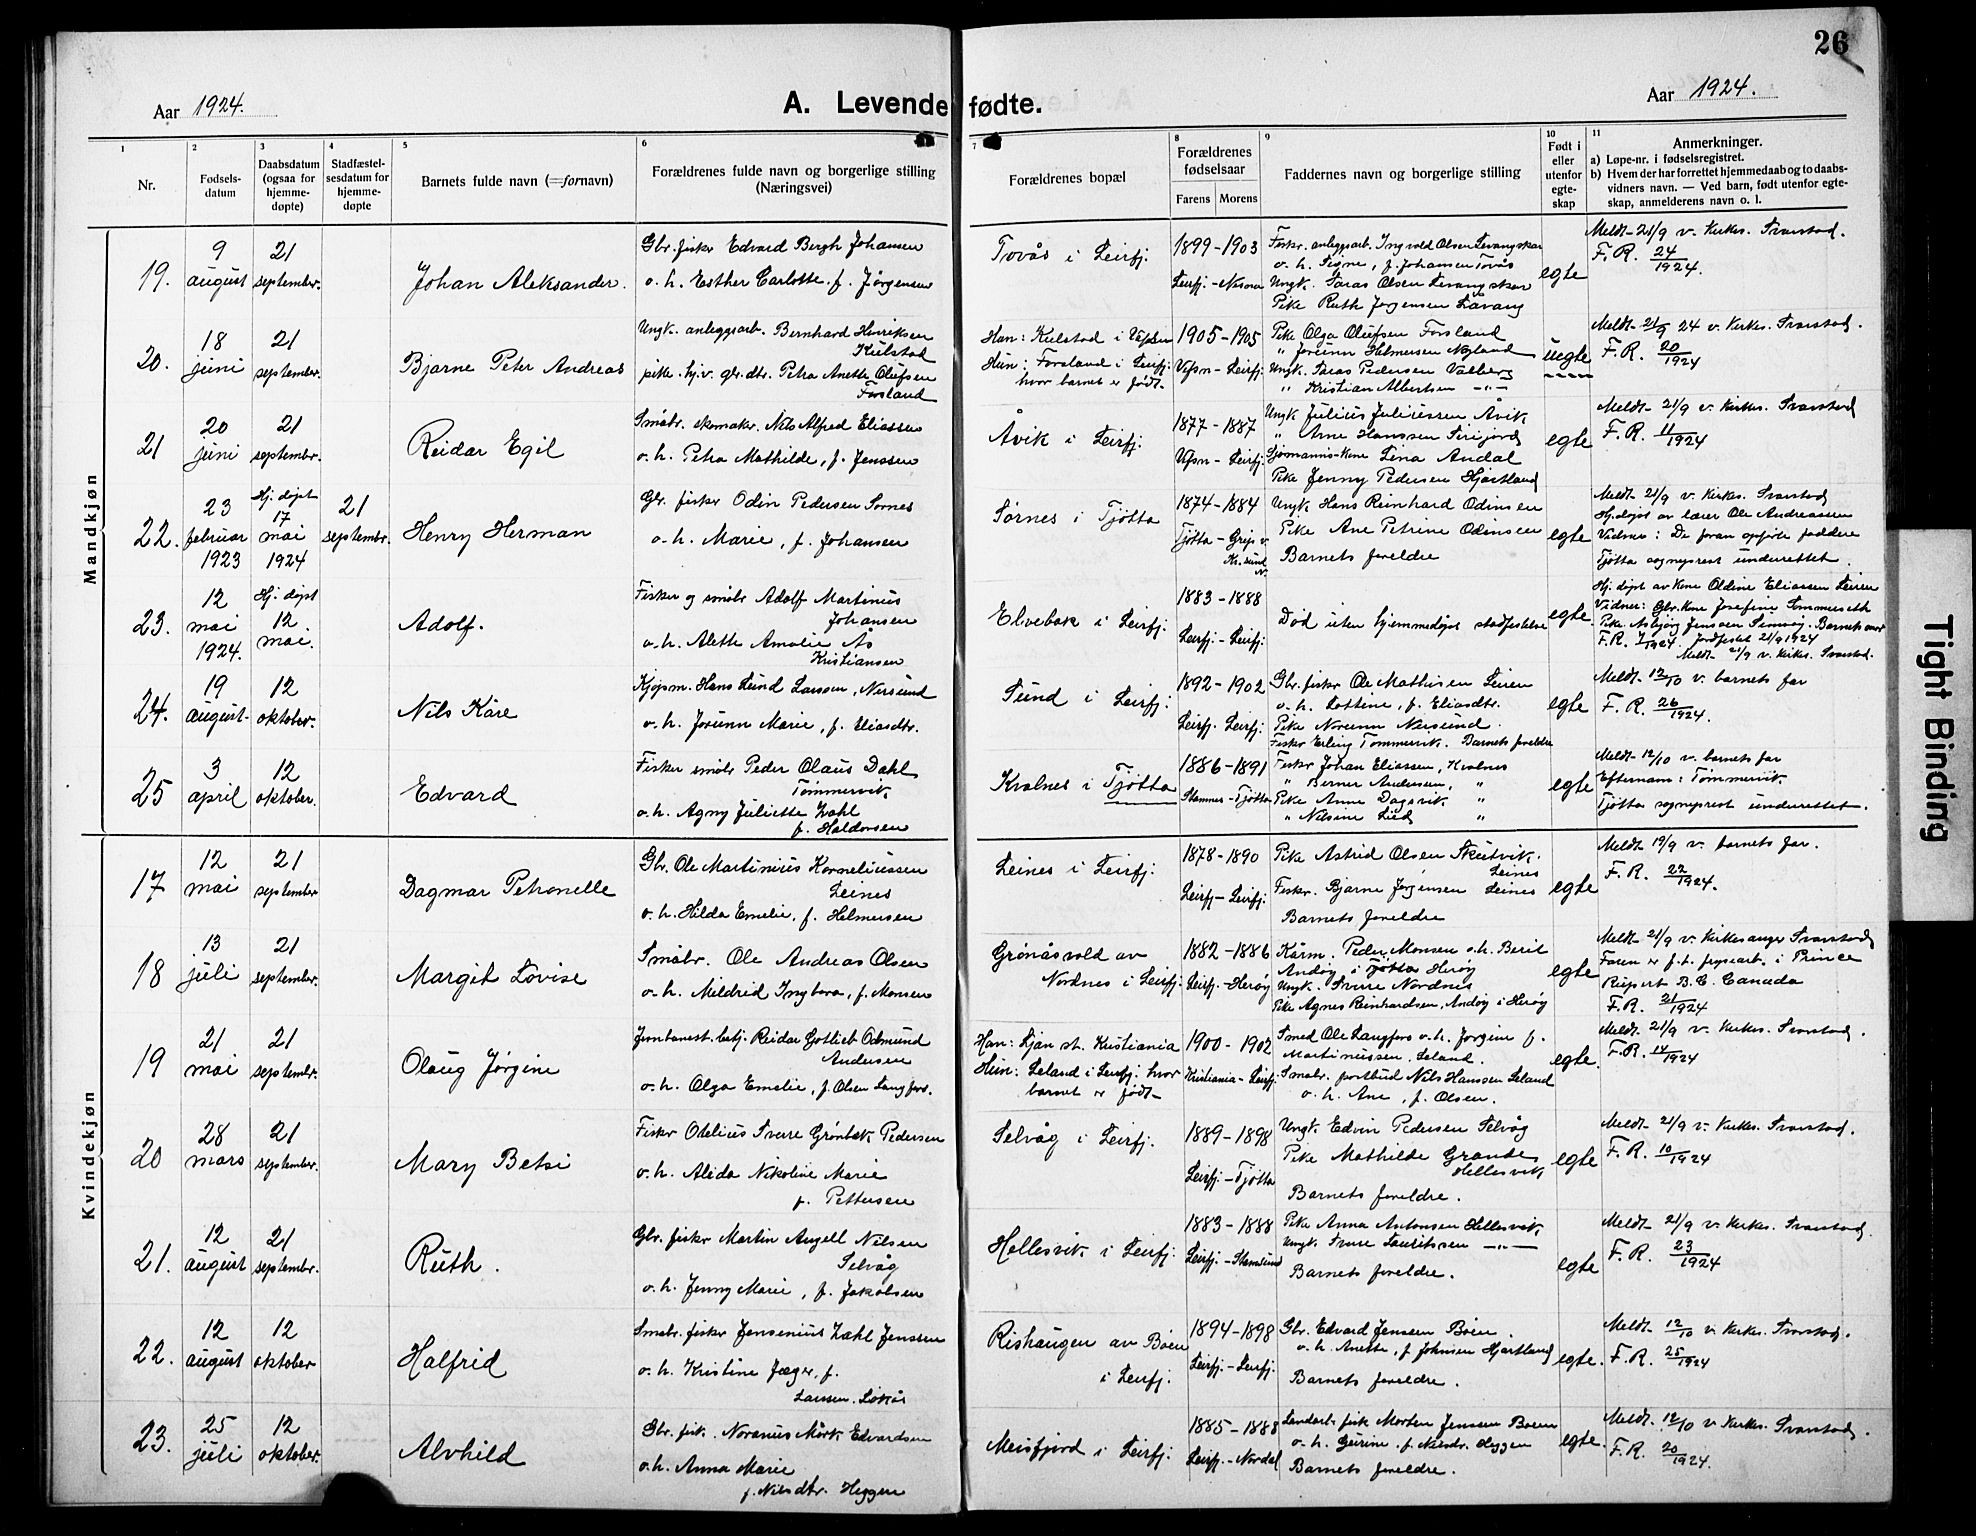 26
Aar 1924.
A. Levende fødte.
Aar 1924.
1 2 3 4 5 6 7 8 9 10 11
Nr.
Fødsels-
datum
Daabsdatum
(ogsaa for
hjemme-
døpte)
Stadfæstel-
sesdatum for
hjemme-
døpte
Barnets fulde navn (=fornavn)
Forældrenes fulde navn og borgerlige stilling
(Næringsvei)
Forældrenes bopæl
Forældrenes
fødselsaar
Farens Morens
Faddernes navn og borgerlige stilling
Født i
eller
utenfor
egte-
skap
Anmerkninger.
a) Løpe-nr. i fødselsregistret.
b) Hvem der har forrettet hjemmedaab og to daabs-
vidners navn. — Ved barn, født utenfor egte-
skap, anmelderens navn o. l.
Mandkjøn
19.
9
august
21
septembr.
Johan Aleksander.
Gbr. fisker Edvard Bergh Johansen
o. h. Esther Carlotte, f. Jørgensen
Tovås i Leirfj.
1899-1903
Leirfj. - Nesna
Fiskr. anleggsarb. Ingvold Olsen Levangskar
o. h. Signe, f. Johansen Tovås
Ungk. Olsen Levangskar
Pike Ruth Jørgensen Lavang
egte
Meldt 21/9 v. Kirkes. Svarstad.
F. R. 24/1924.
20.
18
juni
21
septembr.
Bjarne Peter Andreas
Ungk. anleggsarb. Bernhard Henriksen
Kulstad
pike. hj. v. gbr. dtr. Petra Anette Olufsen
Forsland
Han: Kulstad i Vefsn
Hun: Forsland i Leirfj:
hvor barnet er født.
1905-1905
Vefsn - Leirfj:
Pike Olga Olufsen Forsland
" Jorunn Helmersen Nyland
Ungk. Pedersen Valberg
" Kristian Albertsen -"-
uegte
Meldt 21/9 24 v. Kirkes. Svarstad.
F. R. 20/1924
21
20
juni
21
septembr.
Reidar Egil
Småbr. skomakr. Nils Alfred Eliassen
o. h. Petra Mathilde, f. Jenssen
Åvik i Leirfj.
1877-1887
Vefsn - Leirfj:
Ungk Julius Juliussen Åvik
" Arne Hanssen
Sjømanns-kone Lena Andal
Pike Jenny Pedersen Hjartland
egte
Meldt 21/9 v. Kirkes. Svarstad
F. R. 11/1924
22.
23
februar
1923
Hj. døpt
17
mai
1924
21
septembr.
Henry Herman
Gbr. fisker Odin Pedersen Sørnes
o. h. Marie, f. Johansen
Sørnes i Tjøtta
1874-1884
Tjøtta - Grip v.
Kr.sund
N.
Ungk Hans Reinhard Odinsen
Pike Ane Petrine Odinsen
Barnets foreldre
egte
Meldt 21/9 v. Kirkes. Svarstad
Hj.døpt av lærer Ole Andreassen
Vidner: De foran opførte faddere
Tjøtta sogneprest underrettet.
23.
12
mai
1924.
Hj. døpt
12.
mai.
Adolf.
Fisker og småbr Adolf Martinus
Johansen
o. h. Alette Amalie Ås
Kristiansen
Elvebak i Leirfj.
1883-1888
Leirfj. - Leirfj:
Død uten hjemmedøpt stadfestelse
egte
Hj. døpt av kone Oldine Eliassen Leiren
Vidner: Gbr. kone Josefine Sommerseth
Pike Asbjørg Jenssen
F.R. 7/1924. Jordfestet 21/9 1924
Meldt 21/9 v. Kirkes. Svarstad.
24.
19
august.
12
oktober.
Nils Kåre
Kjøpm. Hans Lund Larssen, Nersund
o. h. Jorunn Marie, f. Eliasdtr.
Sund i Leirfj:
1892-1902
Leirfj. Leirfj:
Gbr. fisker Ole Mathisen Leiren
o. h. Lottine, f. Eliasdtr.
Pike Noreunn Nersund
Fisker Erling Tømmervik. Barnets foreldre
egte
Meldt 12/10 v. barnets far
F. R. 26/1924.
25
3
april
12
oktober.
Edvard
Fisker småbr Peder Olaus Dahl
Tømmervik
o. h. Agny Juliette Zahl
f. Haldorsen
Kvalnes i Tjøtta
1886-1891
Stamnes - Tjøtta
Fisker Johan Eliassen, Kvalnes
" Berner Andersen, "
Pike Anne Dagsvik "
" Nelsine Lied "
egte
Meldt 12/10 v. barnets far
Efternavn: Tømmervik.
Tjøtta sogneprest underrettet.
Kvindekjøn
17
12
mai
21
september
Dagmar Petronelle
Gbr. Ole Martinius Korneliussen
Leines
o. h. Hilda Emelie, f. Helmersen
Leines i Leirfj.
1878-1890
Leirfj - Leirfj:
Pike Astrid Olsen Skutvik.
Leines
Fiskr. Bjarne Jørgensen Leines
Barnets foreldre
egte
Meldt 19/9 v. barnets far.
F. R. 22/1924.
18
13
juli
21
septembr.
Margit Lovise
Småbr. Ole Andreas Olsen
o. h. Mildrid Ingbora, f. Monsen
Grønåsvold av
Nordnes i Leirfj.
1882-1886
Leirfj. - Herøy
Kårm. Peder Monsen o. h. Berit
Andøy i Tjøtta Herøy
Ungk. Sverre Nordnes
Pike Agnes Reinhardsen, Andøy i Herøy
egte
Meldt 21/9 v. Kirkesanger Svarstad
Faren er f. t. frysearb. i Prince
Rupert B. C. Canada
F. R. 21/1924
19
21
mai
21
septembr.
Olaug Jørgine
Jernbanest. betj. Reidar Gotlieb Odmund
Andersen
o. h. Olga Emelie, f. Olsen Langfors.
Han: Ljan st. Kristiania
Hun: Leland i Leirfj: hvor
barnet er født.
1900-1902
Kristiania - Leirfj:
Smed Ole Langfors o. h. Jørgine f.
Martinussen, Leland.
Småbr. postbud Nils Hanssen Leland
o. h. Ane, f. Olsen.
egte.
Meldt 21/9 v. Kirkes. Svarstad.
F.R. 14/1924
20
28
mars
21
septembr.
Mary Betsi
Fisker Otelius Sverre Grønbæk Pedersen
o. h. Alida Nikoline Marie
f. Pettersen
Selvåg i Leirfj.
1889-1898
Leirfj: - Tjøtta
Ungk. Edvin Pedersen Selvåg
Pike Mathilde Grande
Hellesvik
Barnets foreldre.
egte
Meldt 21/9 v. Kirkes. Svarstad.
F. R. 10/1924
21.
12
august
21
septembr.
Ruth.
Gbr. fisker Martin Angell Nilsen
Selvåg
o. h. Jenny Marie, f. Jakobsen
Hellesvik i Leirfj:
1883-1888
Leirfj. - Stamsund
Pike Anna Antonsen Hellesvik
Ungk. Lauritssen -"-
Barnets foreldre.
egte
Meldt 21/9 v. Kirkes. Svarstad.
F. R. 23/1924
22.
12
august
12
oktober
Halfrid
Småbr. fisker Jensenius Zahl Jenssen
o. h. Kristine Jæger, f.
Larssen. Løkås
Rishaugen av Bøen
i Leirfj.
1894-1898
Leirfj: - Leirfj:
Gbr. Edvard Jenssen Bøen
o. h. Anette, f Johnsen Hjartland
Barnets foreldre.
egte.
Meldt 12/10 v. Kirkes. Svarstad.
F. R. 25/1924
23.
25
juli
12
oktober.
Alvhild
Gbr. fisk. Noranus Mørk Edvardsen
o. h. Anna Marie
f. Nilsdtr. Heggen
Meisfjord i Leirfj:
1885-1888
Leirfj. - Nordal
Landarb. fisk Morten Jenssen Bøen
o. h. Gurine, f. Nilsdr. Heggen
Barnets foreldre.
egte.
Meldt 12/10 v. Kirkes. Svarstad.
F. R. 20/1924.
Tight Binding